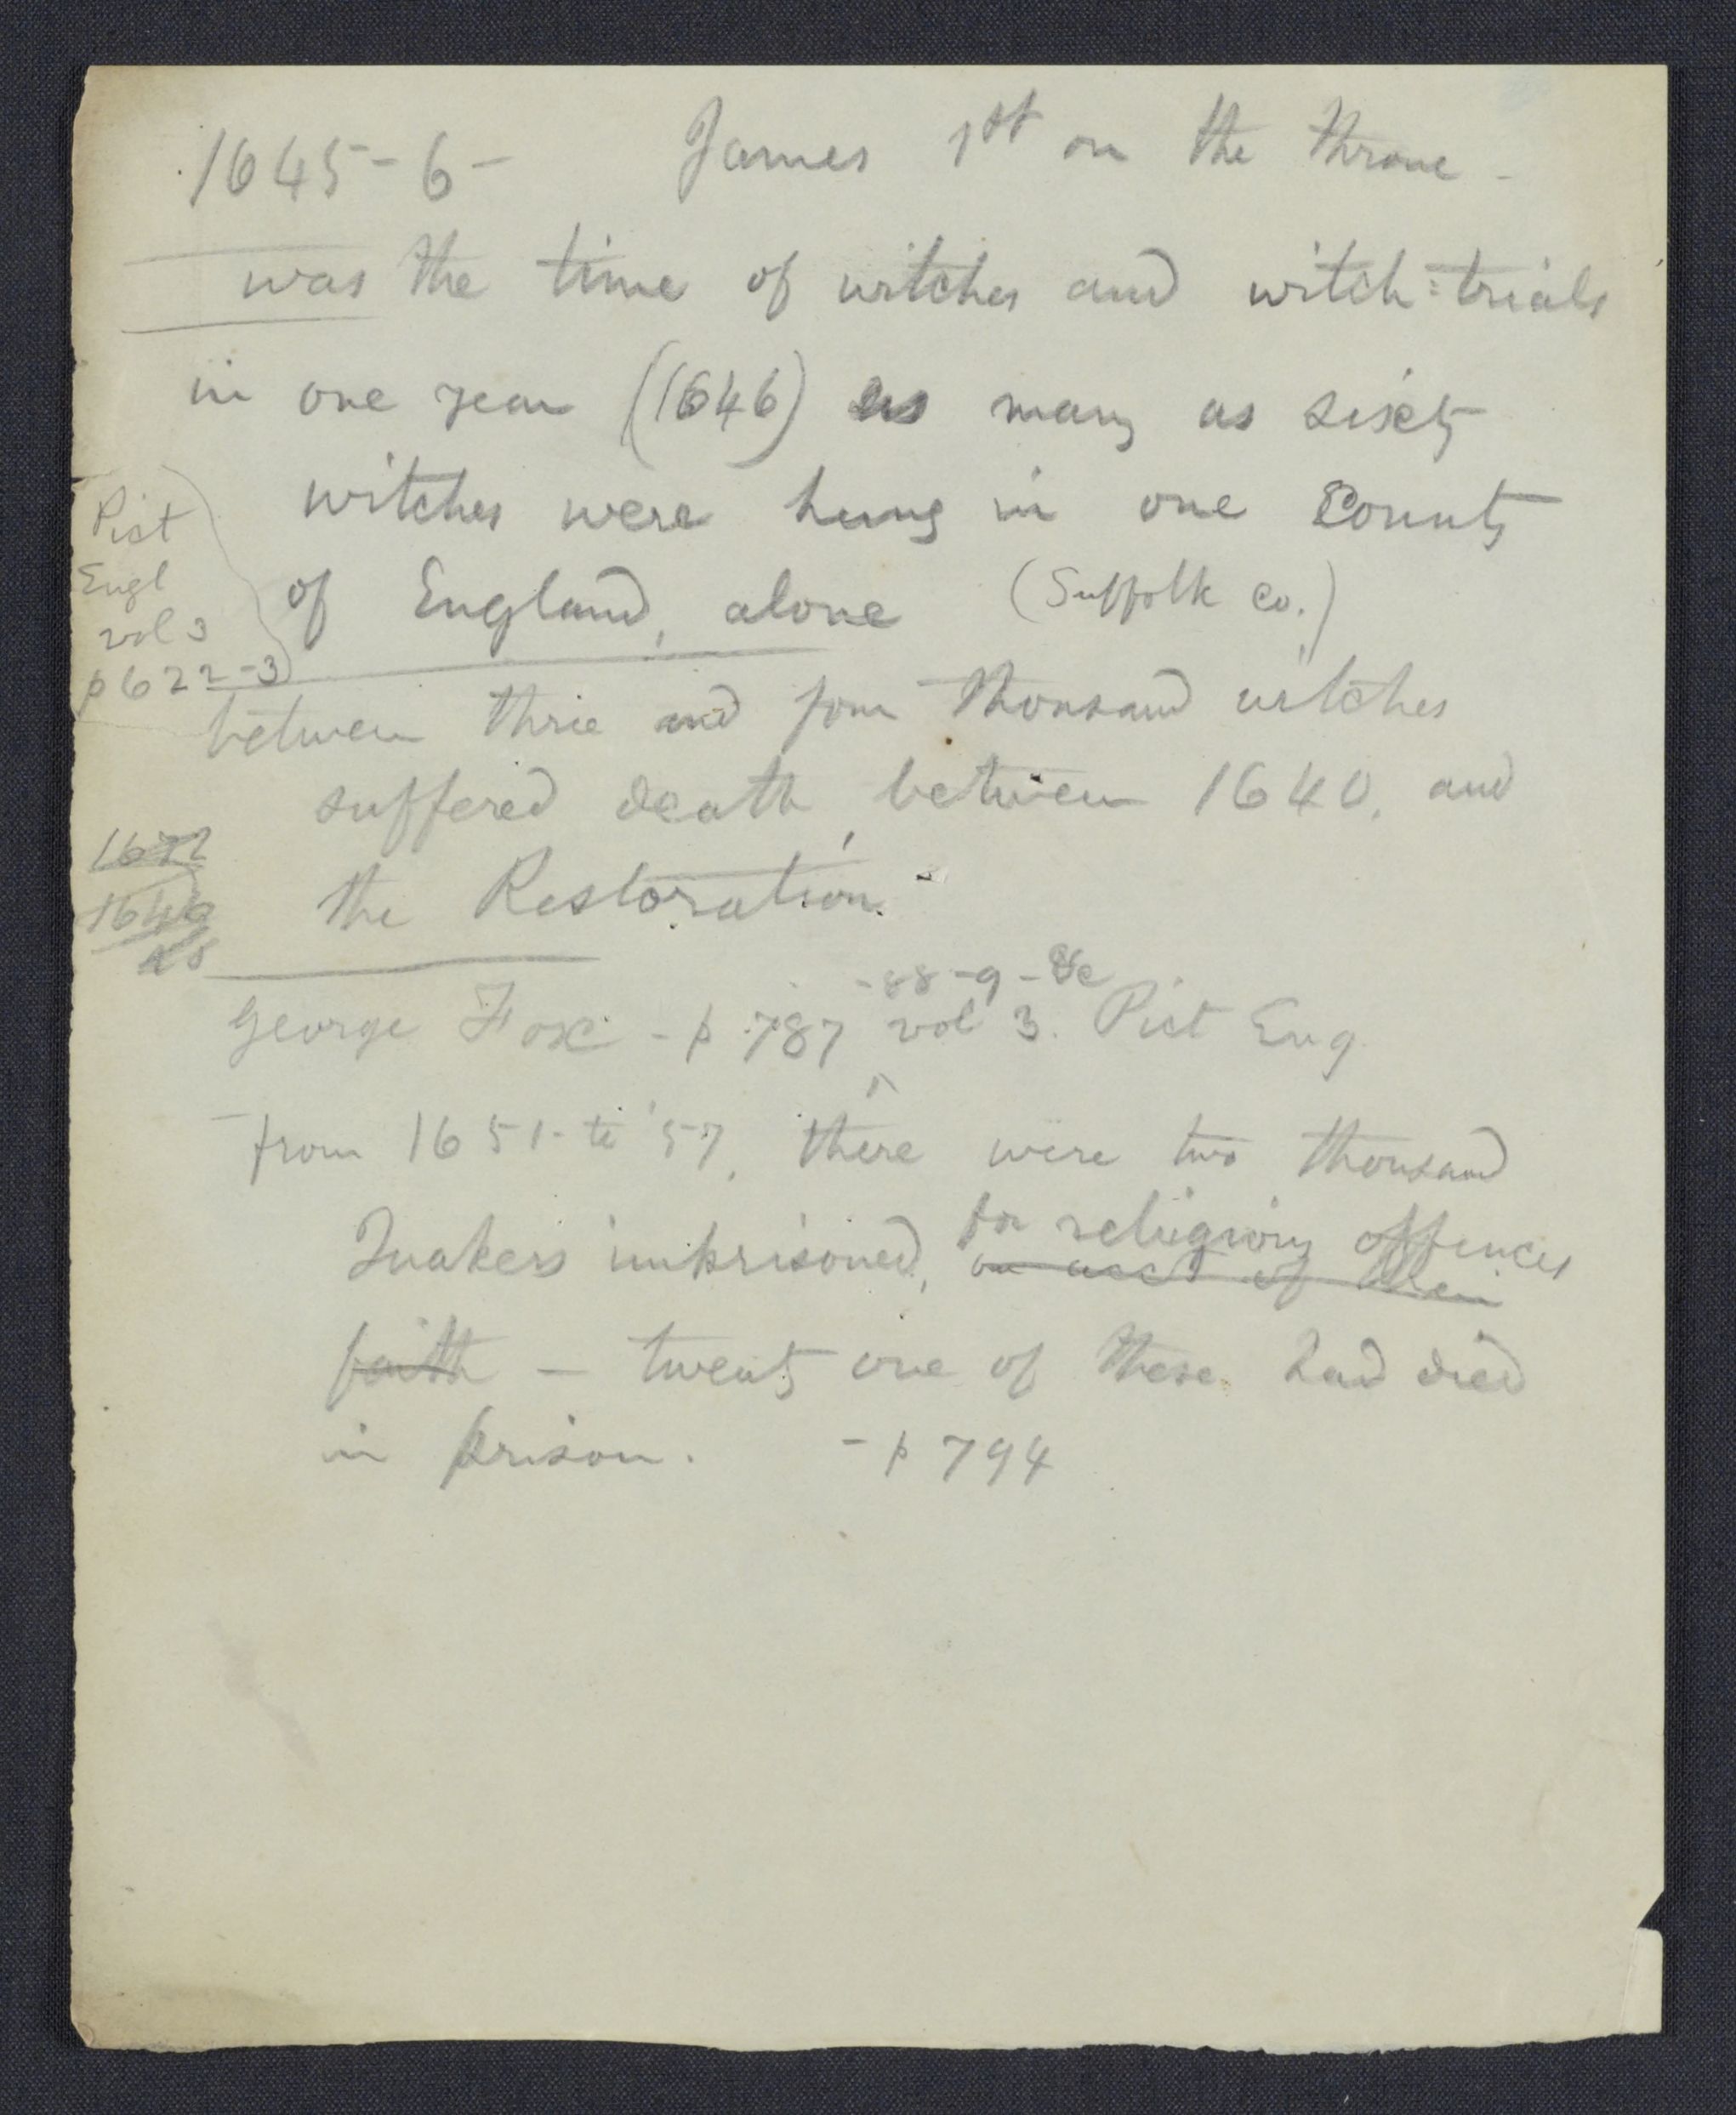 1645-6- James 1st on the throne -
was the time of witches and witch-trials
in one year (1646) as many as sixty
witches were hung in one County
of England, alone (Suffolk Co.)
Pict
Engl
vol 3
p 622-3
between three and four thousand witches
suffered death, between 1640, and
the Restoration -
1646
George Fox - p 787 -88-9-&c vol 3. Pict Eng
from 1651- to '57, there were two thousand
Quakers imprisoned, for religious offences
on acct of their
faith - twenty one of these had died
in prison. - p 794